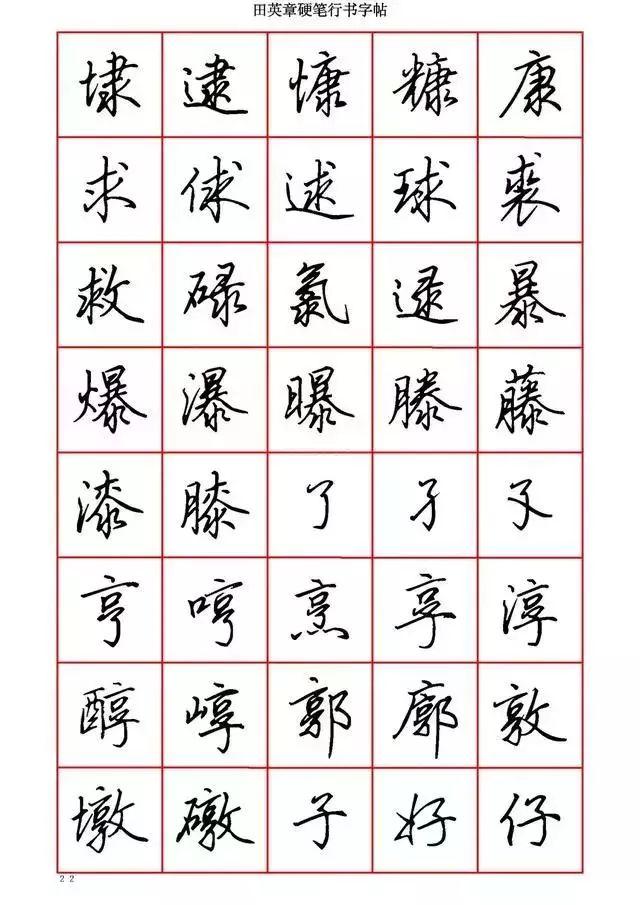 田英章硬笔行书字帖
埭 逮 慷 糠 康
求 俅 逑 球 裘
救 碌 氯 逯 暴
爆 瀑 曝 滕 藤
漆 膝 了 孑 孓
亨 哼 烹 享 淳
醇 崞 郭 廓 敦
墩 礅 子 好 仔
22